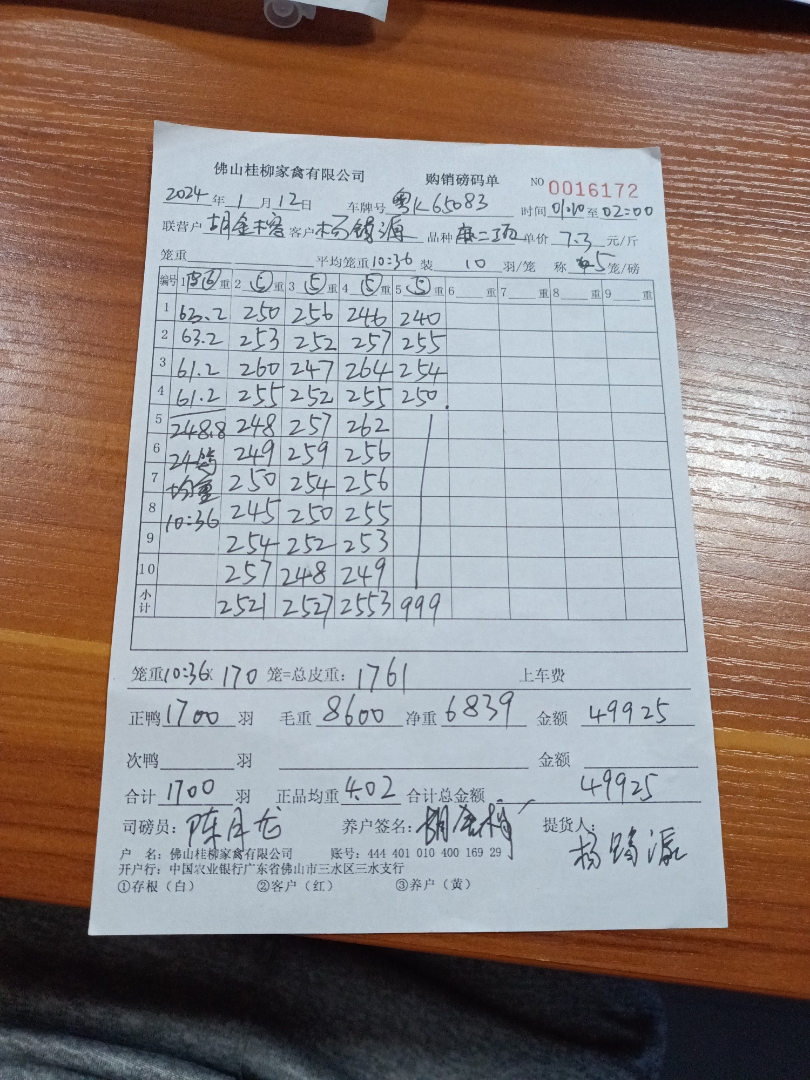 佛山桂柳家禽有限公司 购销磅码单 NO 0016172
2024年1月12日 车牌号 粤K65083 时间 01:10至02:00
联营户 胡金榕 客户 杨锦源 品种 麻二项 单价 7.3 元/斤
笼重 平均笼重10:36 装 10 羽/笼 称 5 笼/磅
编号 1 重 2 ⑤ 重 3 ⑤ 重 4 ⑤ 重 5 ⑤ 重 6 重 7 重 8 重 9 重
1 63.2 250 256 246 240
2 63.2 253 252 257 255
3 61.2 260 247 264 254
4 61.2 255 252 255 250.
5 248.8 248 257 262
6 24鸭 249 259 256
7 均重 250 254 256
8 10:36 245 250 255
9 254 252 253
10 257 248 249
小计 2521 2527 2553 999
笼重10:36× 170 笼=总皮重: 1761 上车费
正鸭 1700 羽 毛重 8600 净重 6839 金额 49925
次鸭 羽 金额
合计 1700 羽 正品均重 4.02 合计总金额 49925
司磅员: 陈 龙 养户签名: 胡 提货人: 杨锦源
户 名: 佛山桂柳家禽有限公司 账号: 444 401 010 400 169 29
开户行: 中国农业银行广东省佛山市三水区三水支行
①存根（白） ②客户（红） ③养户（黄）